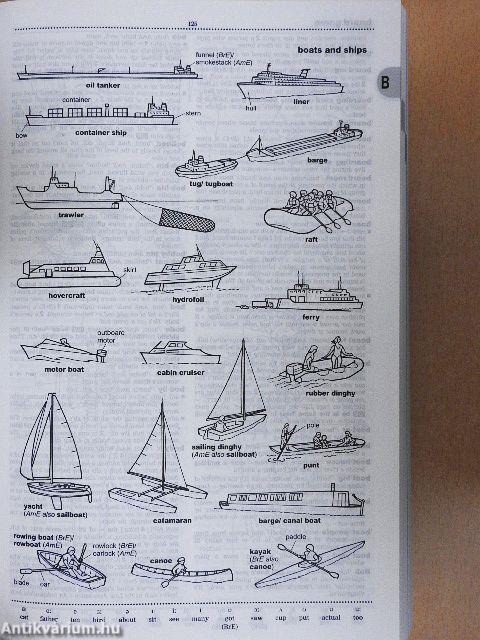 125
boats and ships
B
funnel (BrE)/
smokestack (AmE)
oil tanker
hull
liner
container
stern
bow
container ship
barge
tug/ tugboat
trawler
raft
skirt
hovercraft
hydrofoil
ferry
outboard
motor
motor boat
cabin cruiser
rubber dinghy
sailing dinghy
(AmE also sailboat)
pole
punt
yacht
(AmE also sailboat)
catamaran
barge/ canal boat
rowing boat (BrE)/
rowboat (AmE)
rowlock (BrE)/
oarlock (AmE)
blade
oar
canoe
paddle
kayak
(BrE also
canoe)
cat father ten bird about sit see many got saw cup put actual too
(BrE)
Antikvarium.hu